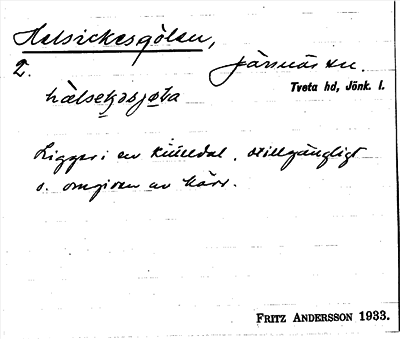 Helsickesgölen,
2. Järsnäs sn.
Tveta hd, Jönk. l.
hälsekəsjøta
Ligger i en kitteldal, otillgängligt
o. omgiven av kärr.
FRITZ ANDERSSON 1933.